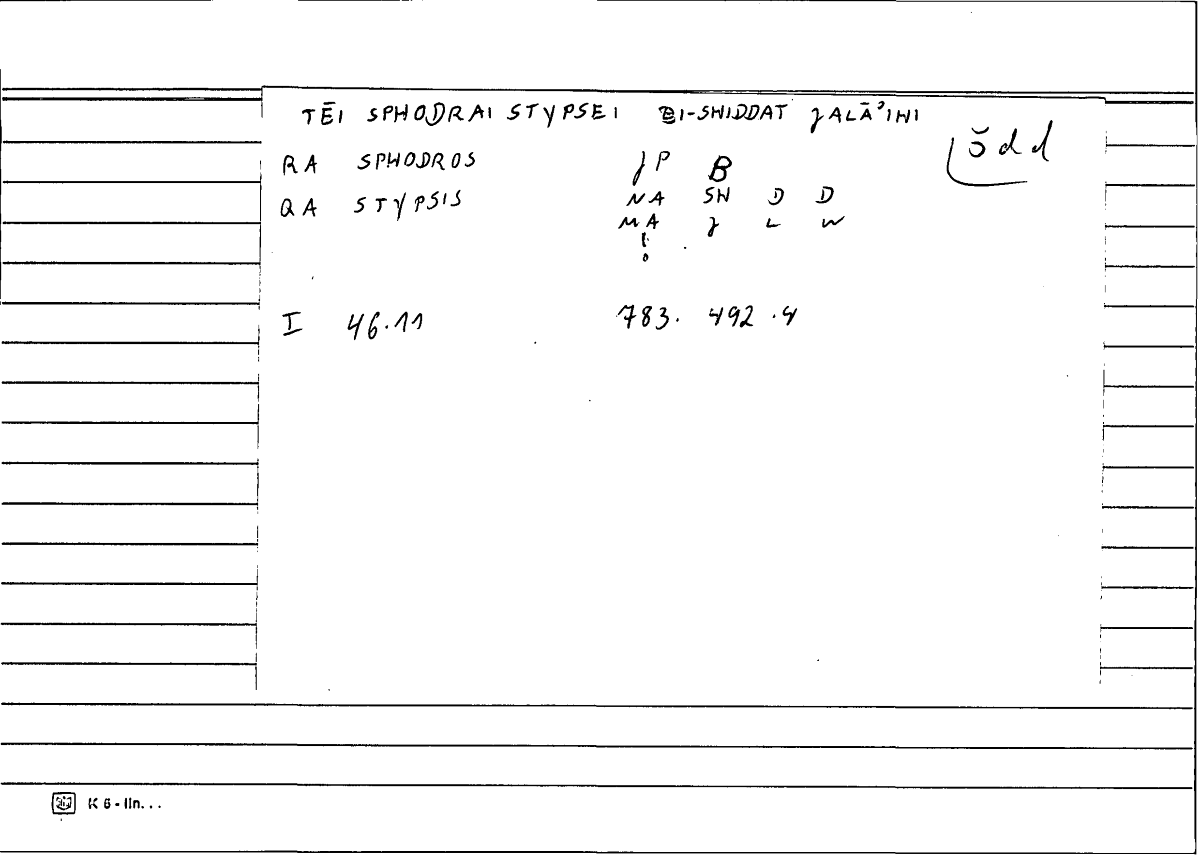 TĒI SPHODRAI STYPSEI BI-SHIDDAT JALĀʾIHI
šdd
RA SPHODROS JP B
QA STYPSIS NA SH D D
MA J L W
!
I 46.11 783. 492 .4
K 6 - lin...